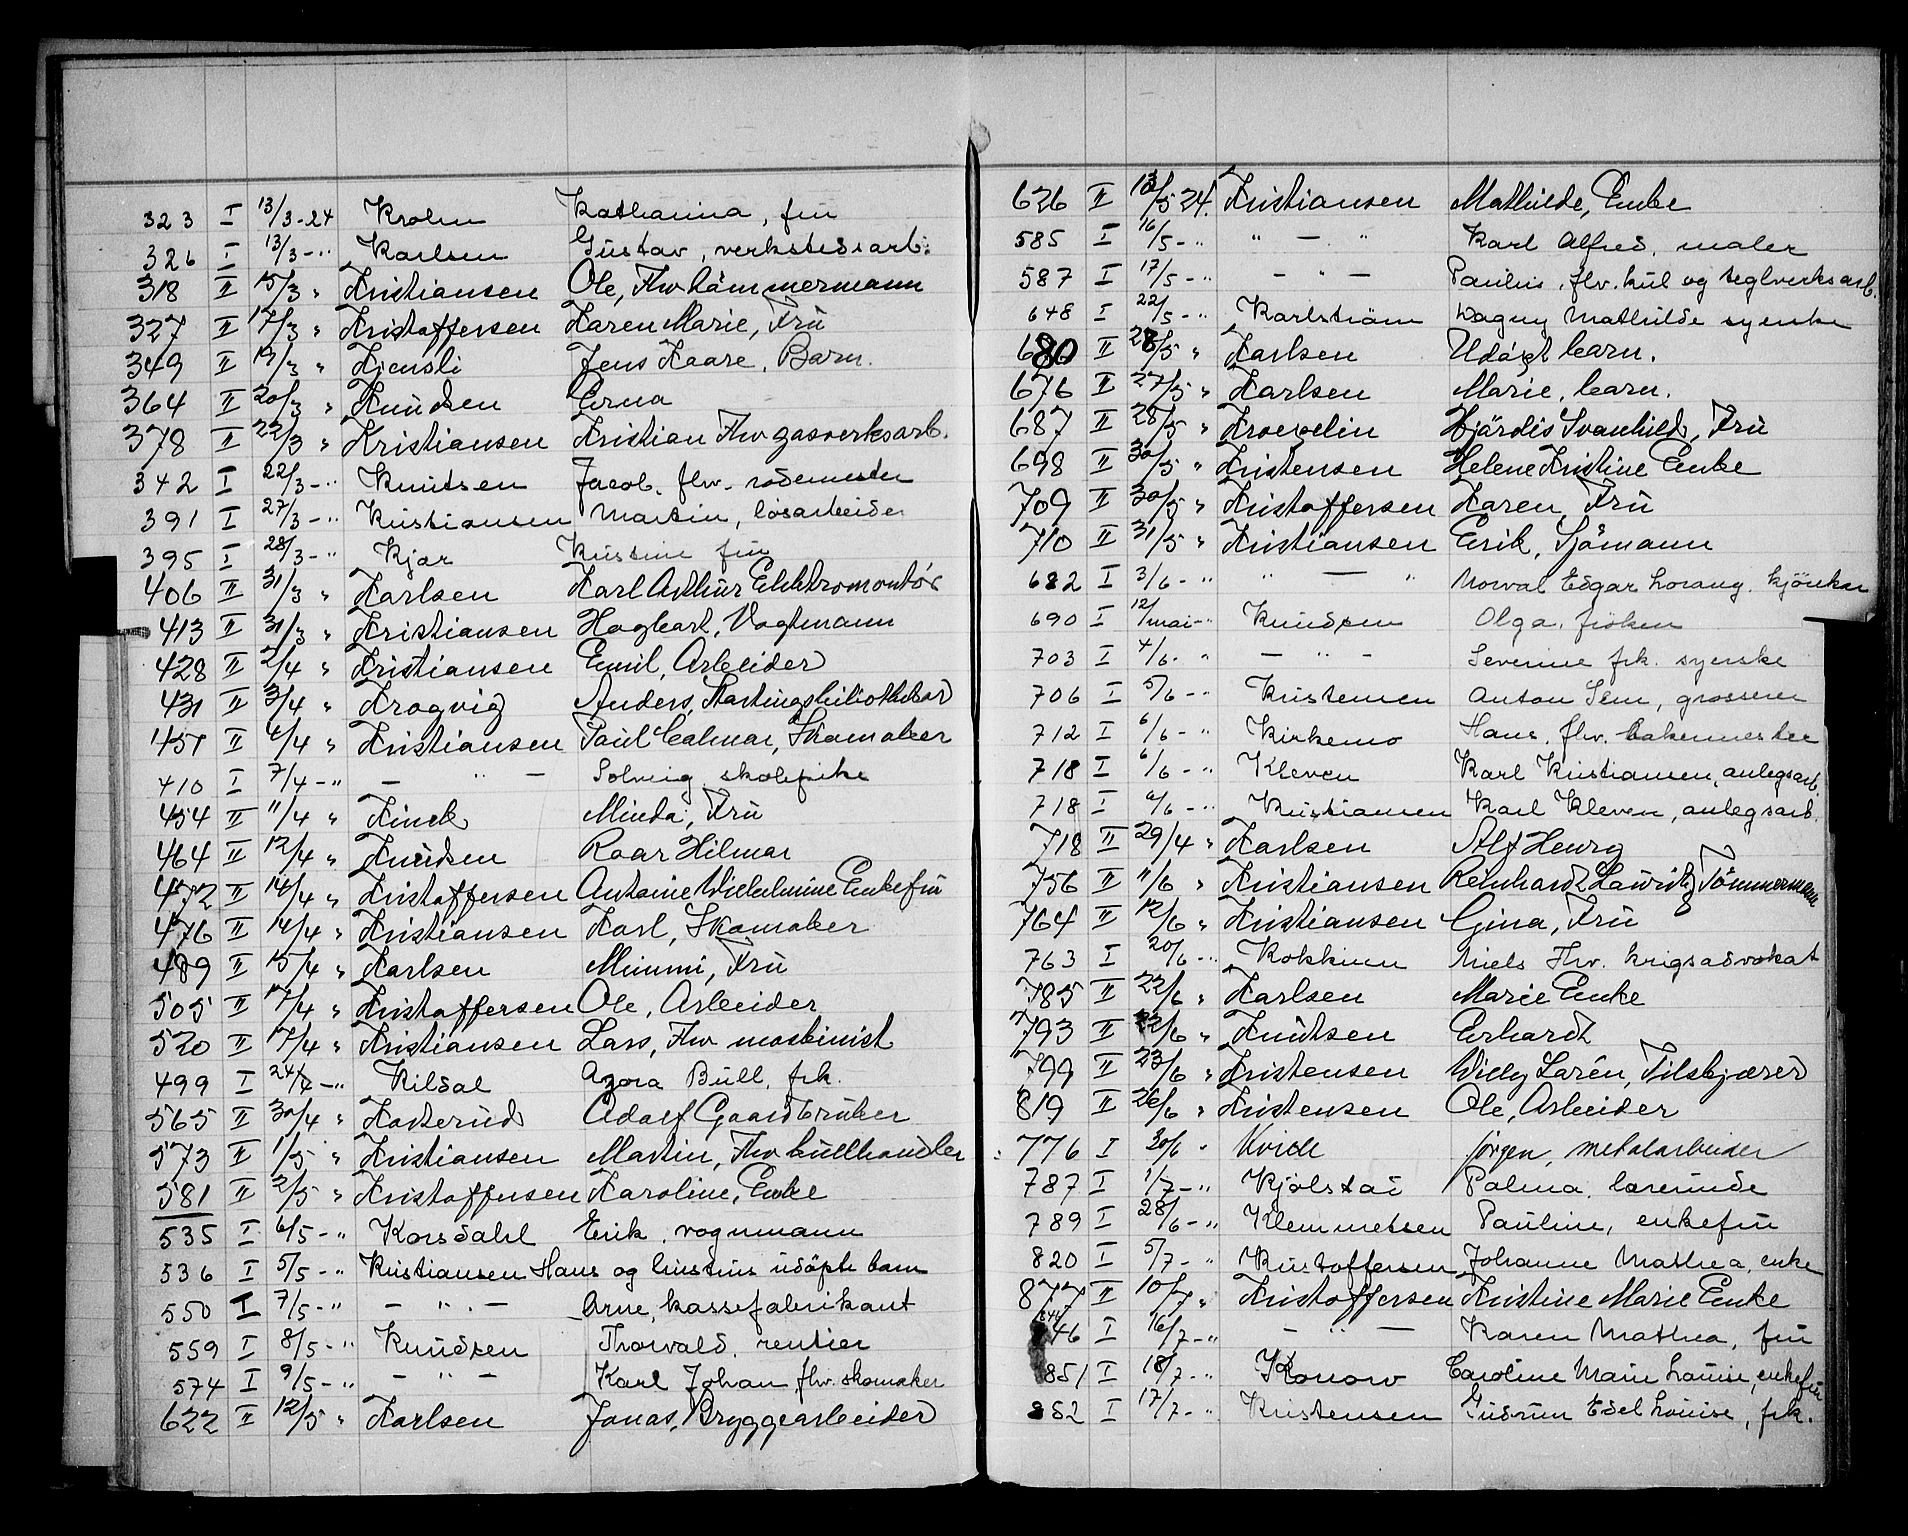 323 I 13/3-24 Krohn Katharina, fru
326 I 13/3-" Karlsen Gustav, verkstedsarb.
318 II 15/3 " Kristiansen Ole, Fhv tömmermann
327 II 17/3 " Kristoffersen Karen Marie, Fru
349 II 19/3 " Kjensli Jens Kaare, Barn.
364 II 20/3 " Knudsen Erna
378 II 22/3 " Kristiansen Kristian Fhv gasverksarb.
342 I 22/3-" Knutsen Jacob. fhv. rodemester
391 I 27/3-" Kristiansen Martin, løsarbeider
395 I 28/3-" Kjær Kristine fru
406 II 31/3 " Karlsen Karl Arthur Elektromontör
413 II 31/3 " Kristiansen Hagbart, Vogtmann
428 II 2/4 " Kristiansen Emil, Arbeider
431 II 3/4 " Krogvig Anders, Stortingsbibliothekar
451 II 4/4 " Kristiansen Paul Calmar, Skomaker
410 I 7/4-" - " - Solveig skolepike
454 II 11/4 " Kinck Minda, Fru
464 II 12/4 " Knudsen Roar Hilmar
472 II 14/4 " Kristoffersen Antoine Wilhelmine Enkefru
476 II 14/4 " Kristiansen Karl, Skomaker
489 II 15/4 " Karlsen Mimmi, Fru
505 II 17/4 " Kristoffersen Ole, Arbeider
520 II 17/4 " Kristiansen Lars, Fhv maskinist
499 I 24/4-" Kildal Agora Bull, frk.
565 II 30/4 " Kasterud Adolf Gaardbruker
573 II 1/5 " Kristiansen Martin, Fhv kullhandler
581 II 2/5 " Kristoffersen Karoline, Enke
535 I 6/5-" Korsdahl Erik, vognmann
536 I 5/5-" Kristiansen Hans og Kristines udöpte barn
550 I 7/5-" - " - Arne, kassefabrikant
559 I 8/5-" Knudsen Thorvald, rentier
574 I 9/5-" - " - Karl Johan fhv. skomaker
622 II 12/5 " Karlsen Jonas, Bryggearbeider
626 II 13/5 24. Kristiansen Mathilde, Enke
585 I 16/5-" " - " Karl Alfred, maler
587 I 17/5-" - " - Paulius, fhv. kul og teglverksarb.
648 I 22/5-" Karlström Dagny Mathilde syerske
680 II 28/5 " Karlsen Udöpt barn.
676 II 27/5 " Karlsen Marie, barn.
687 II 28/5 " Kroepelin Hjördis Svanhild, Fru
698 II 30/5 " Kristensen Helene Kristine Enke
709 II 30/5 " Kristoffersen Karen, Fru
710 II 31/5 " Kristiansen Erik, Sjömann
682 I 3/6-" " - " Norval Edgar Lorang. kjörekar
690 I 12/mai-" Knudsen Olga, fröken
703 I 4/6-" - " - Severine frk. syerske
706 I 5/6-" Kristensen Anton Sem, grosserer
712 I 6/6-" Kirkemo Hans, fhv. bakermester
718 I 6/6-" Kleven Karl Kristiansen, anlegsarb.
718 I 6/6-" Kristiansen Karl Kleven, anlegsarb.
718 II 29/4 " Karlsen Alf Henry
756 II 11/6 " Kristiansen Reinhardt Lauritz, Tömmermann
764 II 12/6 " Kristiansen Gina, Fru
763 I 20/6-" Kokkinn Niels Fhv. krigsadvokat
785 II 22/6 " Karlsen Marie Enke
793 II 22/6 " Knudsen Erhardt
799 II 23/6 " Kristensen Willy Laren, Pilskjærer
819 II 26/6 " Kristensen Ole, Arbeider
776 I 30/6 " Kvicle Jörgen, metalarbeider
787 I 1/7-" Kjølstad Palma, lærerinde
789 I 28/6-" Klemmetsen Pauline, enkefru
820 I 5/7-" Kristoffersen Johanne Mathea, enke
877 II 10/7 " Kristoffersen Kristine Marie Enke
846 I 16/7-" - " - Karen Mathea, fru
851 I 18/7-" Konow Caroline Marie Louise, enkefru
852 I 17/7-" Kristensen Gudrun Edel Louise, frk.